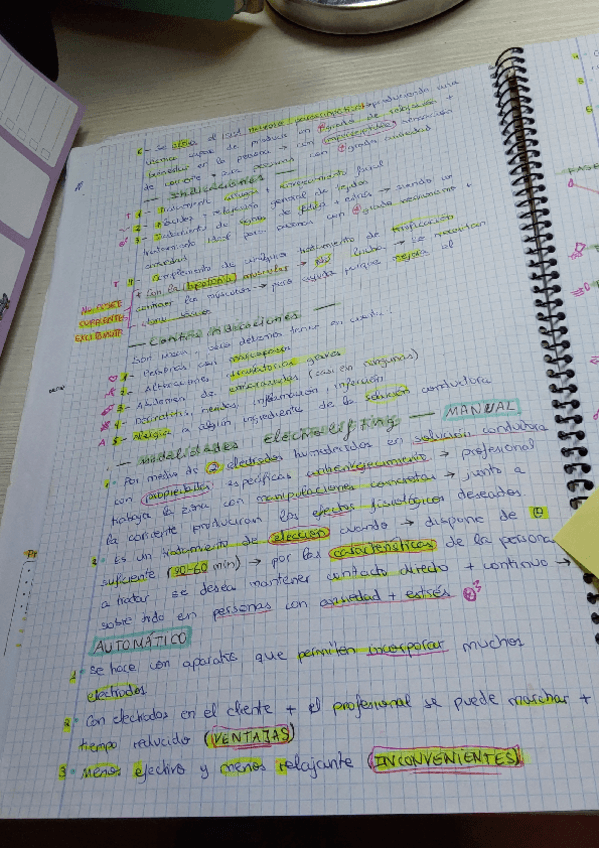 6 - Se activa el sist nervioso parasimpático, produciendo
capaz de producir un grado de relajación +
bienestar en la persona → con
de corriente → para personas con grado ansiedad
— Indicaciones —
1 - envejecimiento facial
2 - relajación general de tejidos
3 - Tratamiento de signos de fatiga + estrés → siendo un
tratamiento ideal para personas con grado nerviosismo +
ansiedad
4 - Complemento de cualquier tratamiento de tonificación
* Con la hipotonía muscular →
contraer los músculos → pero ayuda porque mejora el
NO PUEDE
CORRIENTE
EXCITOMOTRIZ
— Contraindicaciones —
Son pocas, pero debemos tener en cuenta:
1 - Personas con marcapasos
2 - Alteraciones circulatorias graves
3 - Abdomen de embarazadas (casi en ninguna)
4 - Dermatitis, heridas, inflamación, infección
5 - Alergia a algún ingrediente de la solución conductora
— Modalidades Electrolifting — MANUAL
1 • Por medio de 2 electrodos humedecidos en solución conductora
con propiedades específicas antienvejecimiento → profesional
trabaja la zona con manipulaciones concretas → junto a
la corriente producirán los efectos fisiológicos deseados.
2 • Es un tratamiento de elección cuando → dispone de
suficiente (90-60 min) → por las características de la persona
a tratar se desea mantener contacto directo + continuo →
sobre todo en personas con ansiedad + estrés
AUTOMÁTICO
1 • Se hace con aparatos que permiten incorporar muchos
electrodos
2 • Con electrodos en el cliente + el profesional se puede marchar +
tiempo reducido (VENTAJAS)
3 • Menos efectivo y menos relajante (INCONVENIENTES)